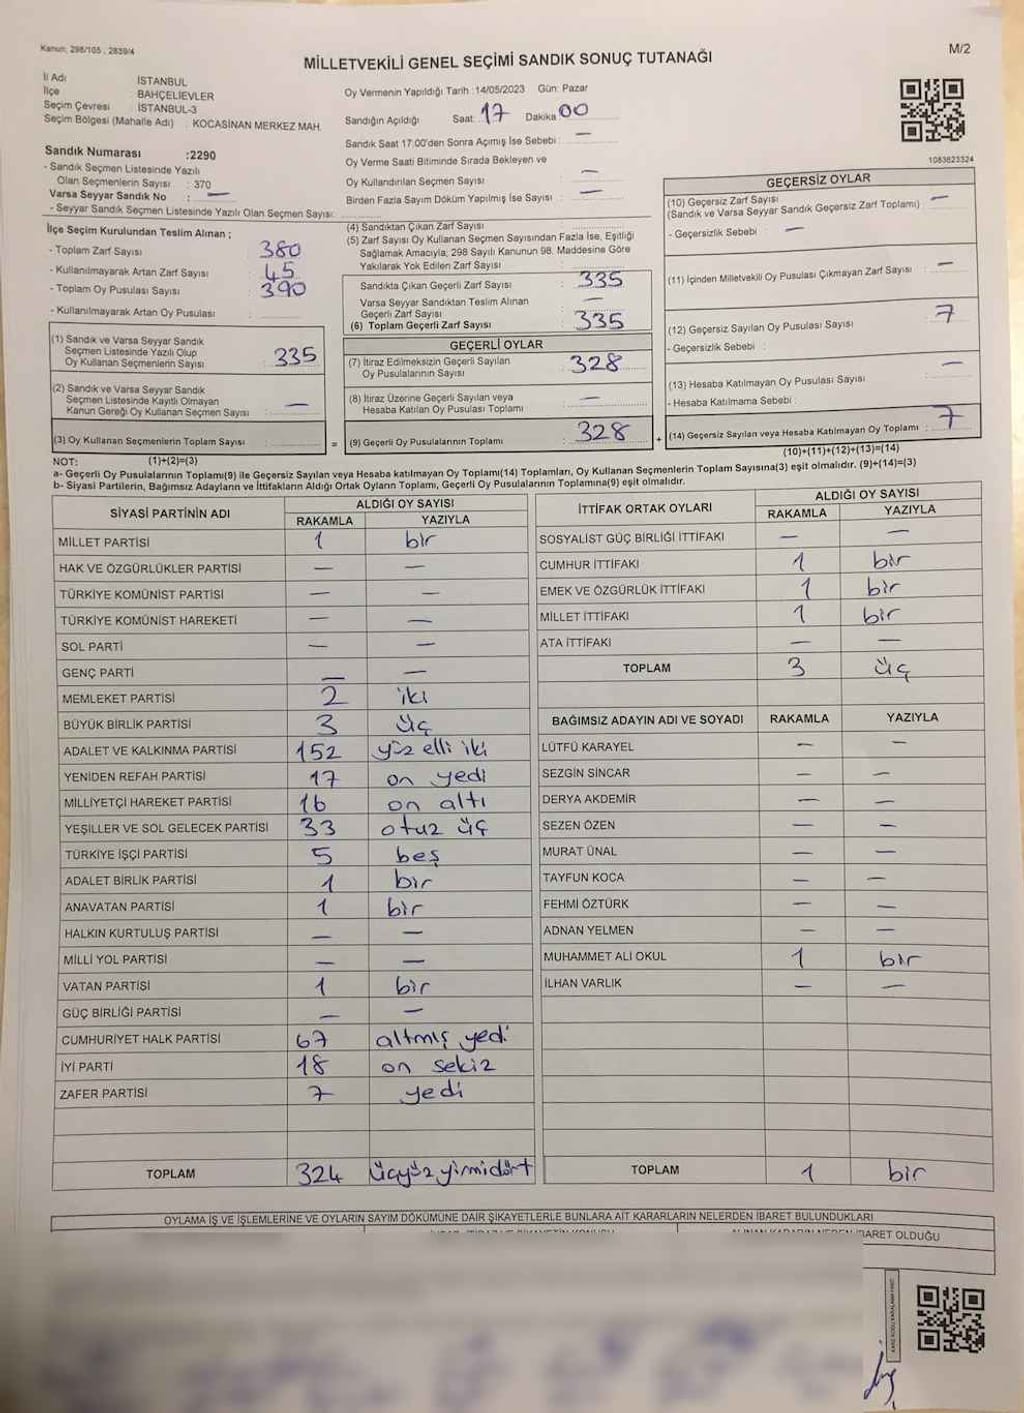 Kanun; 298/105 , 2839/4
M/2
MİLLETVEKİLİ GENEL SEÇİMİ SANDIK SONUÇ TUTANAĞI
İl Adı İSTANBUL
İlçe BAHÇELİEVLER
Seçim Çevresi İSTANBUL-3
Seçim Bölgesi (Mahalle Adı) : KOCASİNAN MERKEZ MAH.
Sandık Numarası :2290
- Sandık Seçmen Listesinde Yazılı
Olan Seçmenlerin Sayısı : 370
Varsa Seyyar Sandık No : —
- Seyyar Sandık Seçmen Listesinde Yazılı Olan Seçmen Sayısı:
Oy Vermenin Yapıldığı Tarih :14/05/2023 Gün: Pazar
Sandığın Açıldığı Saat: 17 Dakika 00
Sandık Saat 17:00'den Sonra Açımış İse Sebebi : —
Oy Verme Saati Bitiminde Sırada Bekleyen ve
Oy Kullandırılan Seçmen Sayısı : —
Birden Fazla Sayım Döküm Yapılmış İse Sayısı : —
1083623324
İlçe Seçim Kurulundan Teslim Alınan ;
- Toplam Zarf Sayısı : 380
- Kullanılmayarak Artan Zarf Sayısı : 45
- Toplam Oy Pusulası Sayısı : 390
- Kullanılmayarak Artan Oy Pusulası :
(1) Sandık ve Varsa Seyyar Sandık
Seçmen Listesinde Yazılı Olup
Oy Kullanan Seçmenlerin Sayısı : 335
(2) Sandık ve Varsa Seyyar Sandık
Seçmen Listesinde Kayıtlı Olmayan
Kanun Gereği Oy Kullanan Seçmen Sayısı : —
(3) Oy Kullanan Seçmenlerin Toplam Sayısı :
(1)+(2)=(3)
(4) Sandıktan Çıkan Zarf Sayısı :
(5) Zarf Sayısı Oy Kullanan Seçmen Sayısından Fazla İse, Eşitliği
Sağlamak Amacıyla; 298 Sayılı Kanunun 98. Maddesine Göre
Yakılarak Yok Edilen Zarf Sayısı :
Sandıkta Çıkan Geçerli Zarf Sayısı : 335
Varsa Seyyar Sandıktan Teslim Alınan
Geçerli Zarf Sayısı : —
(6) Toplam Geçerli Zarf Sayısı : 335
GEÇERLİ OYLAR
(7) İtiraz Edilmeksizin Geçerli Sayılan
Oy Pusulalarının Sayısı : 328
(8) İtiraz Üzerine Geçerli Sayılan veya
Hesaba Katılan Oy Pusulası Toplamı : —
= (9) Geçerli Oy Pusulalarının Toplamı : 328 +
GEÇERSİZ OYLAR
(10) Geçersiz Zarf Sayısı : —
(Sandık ve Varsa Seyyar Sandık Geçersiz Zarf Toplamı)
- Geçersizlik Sebebi : —
(11) İçinden Milletvekili Oy Pusulası Çıkmayan Zarf Sayısı : —
(12) Geçersiz Sayılan Oy Pusulası Sayısı : 7
- Geçersizlik Sebebi :
(13) Hesaba Katılmayan Oy Pusulası Sayısı : —
- Hesaba Katılmama Sebebi :
(14) Geçersiz Sayılan veya Hesaba Katılmayan Oy Toplamı : 7
(10)+(11)+(12)+(13)=(14)
NOT:
a- Geçerli Oy Pusulasının Toplamı(9) ile Geçersiz Sayılan veya Hesaba katılmayan Oy Toplamı(14) Toplamları, Oy Kullanan Seçmenlerin Toplam Sayısına(3) eşit olmalıdır. (9)+(14)=(3)
b- Siyasi Partilerin, Bağımsız Adayların ve İttifakların Aldığı Ortak Oyların Toplamı, Geçerli Oy Pusulalarının Toplamına(9) eşit olmalıdır.
SİYASİ PARTİNİN ADI ALDIĞI OY SAYISI
RAKAMLA YAZIYLA
MİLLET PARTİSİ 1 bir
HAK VE ÖZGÜRLÜKLER PARTİSİ — —
TÜRKİYE KOMÜNİST PARTİSİ — —
TÜRKİYE KOMÜNİST HAREKETİ — —
SOL PARTİ — —
GENÇ PARTİ — —
MEMLEKET PARTİSİ 2 iki
BÜYÜK BİRLİK PARTİSİ 3 üç
ADALET VE KALKINMA PARTİSİ 152 yüz elli iki
YENİDEN REFAH PARTİSİ 17 on yedi
MİLLİYETÇİ HAREKET PARTİSİ 16 on altı
YEŞİLLER VE SOL GELECEK PARTİSİ 33 otuz üç
TÜRKİYE İŞÇİ PARTİSİ 5 beş
ADALET BİRLİK PARTİSİ 1 bir
ANAVATAN PARTİSİ 1 bir
HALKIN KURTULUŞ PARTİSİ — —
MİLLİ YOL PARTİSİ — —
VATAN PARTİSİ 1 bir
GÜÇ BİRLİĞİ PARTİSİ — —
CUMHURİYET HALK PARTİSİ 67 altmış yedi
İYİ PARTİ 18 on sekiz
ZAFER PARTİSİ 7 yedi
TOPLAM 324 üçyüz yirmidört
İTTİFAK ORTAK OYLARI ALDIĞI OY SAYISI
RAKAMLA YAZIYLA
SOSYALİST GÜÇ BİRLİĞİ İTTİFAKI — —
CUMHUR İTTİFAKI 1 bir
EMEK VE ÖZGÜRLÜK İTTİFAKI 1 bir
MİLLET İTTİFAKI 1 bir
ATA İTTİFAKI — —
TOPLAM 3 üç
BAĞIMSIZ ADAYIN ADI VE SOYADI RAKAMLA YAZIYLA
LÜTFÜ KARAYEL — —
SEZGİN SİNCAR — —
DERYA AKDEMİR — —
SEZEN ÖZEN — —
MURAT ÜNAL — —
TAYFUN KOCA — —
FEHMİ ÖZTÜRK — —
ADNAN YELMEN — —
MUHAMMET ALİ OKUL 1 bir
İLHAN VARLIK — —
TOPLAM 1 bir
OYLAMA İŞ VE İŞLEMLERİNE VE OYLARIN SAYIM DÖKÜMÜNE DAİR ŞİKAYETLERLE BUNLARA AİT KARARLARIN NELERDEN İBARET BULUNDUKLARI
İBARET OLDUĞU